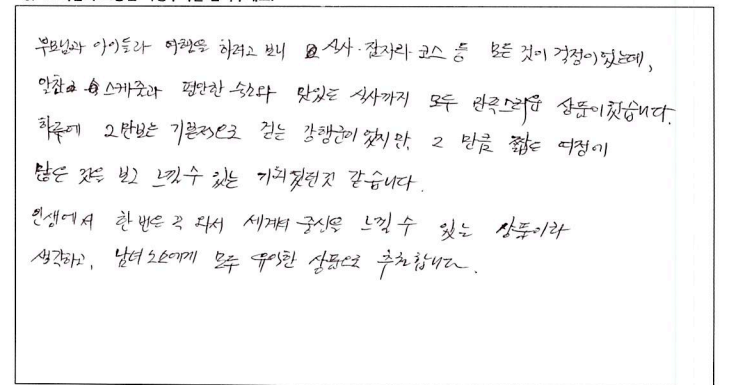 부모님과 아이들과 여행을 하려고 보니 식사·잠자리·코스 등 모든 것이 걱정이었는데,
알찬 스케줄과 편안한 숙소와 맛있는 식사까지 모두 만족스러운 상품이었습니다.
하루에 2만보는 기본적으로 걷는 강행군이었지만, 그 만큼 짧은 여정에
많은 것을 보고 느낄 수 있는 기회였던것 같습니다.
인생에서 한 번은 꼭 와서 세계의 중심을 느낄 수 있는 상품이라
생각하고, 남녀노소에게 모두 유익한 상품으로 추천합니다.